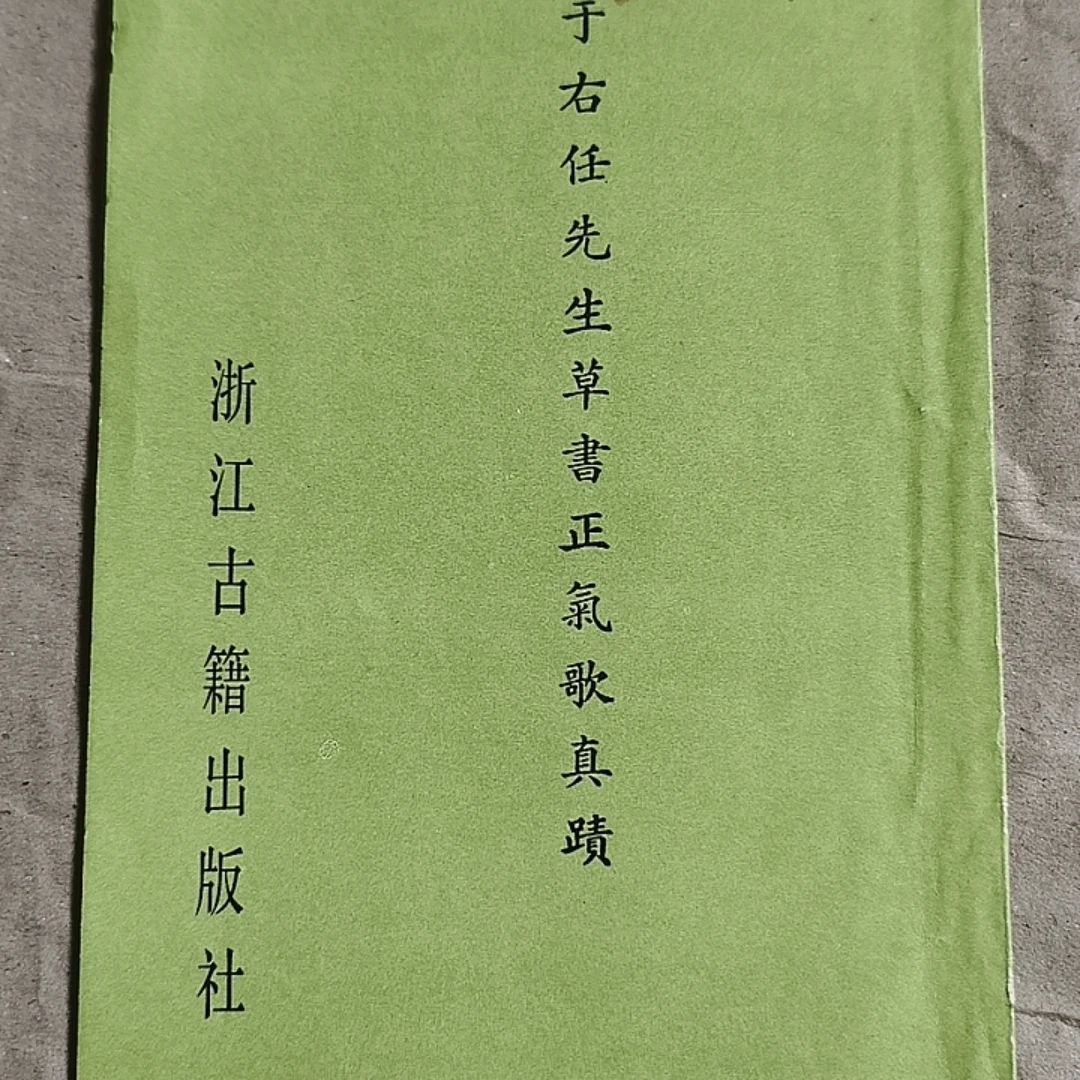 于右任先生草書正氣歌真蹟
浙江古籍出版社